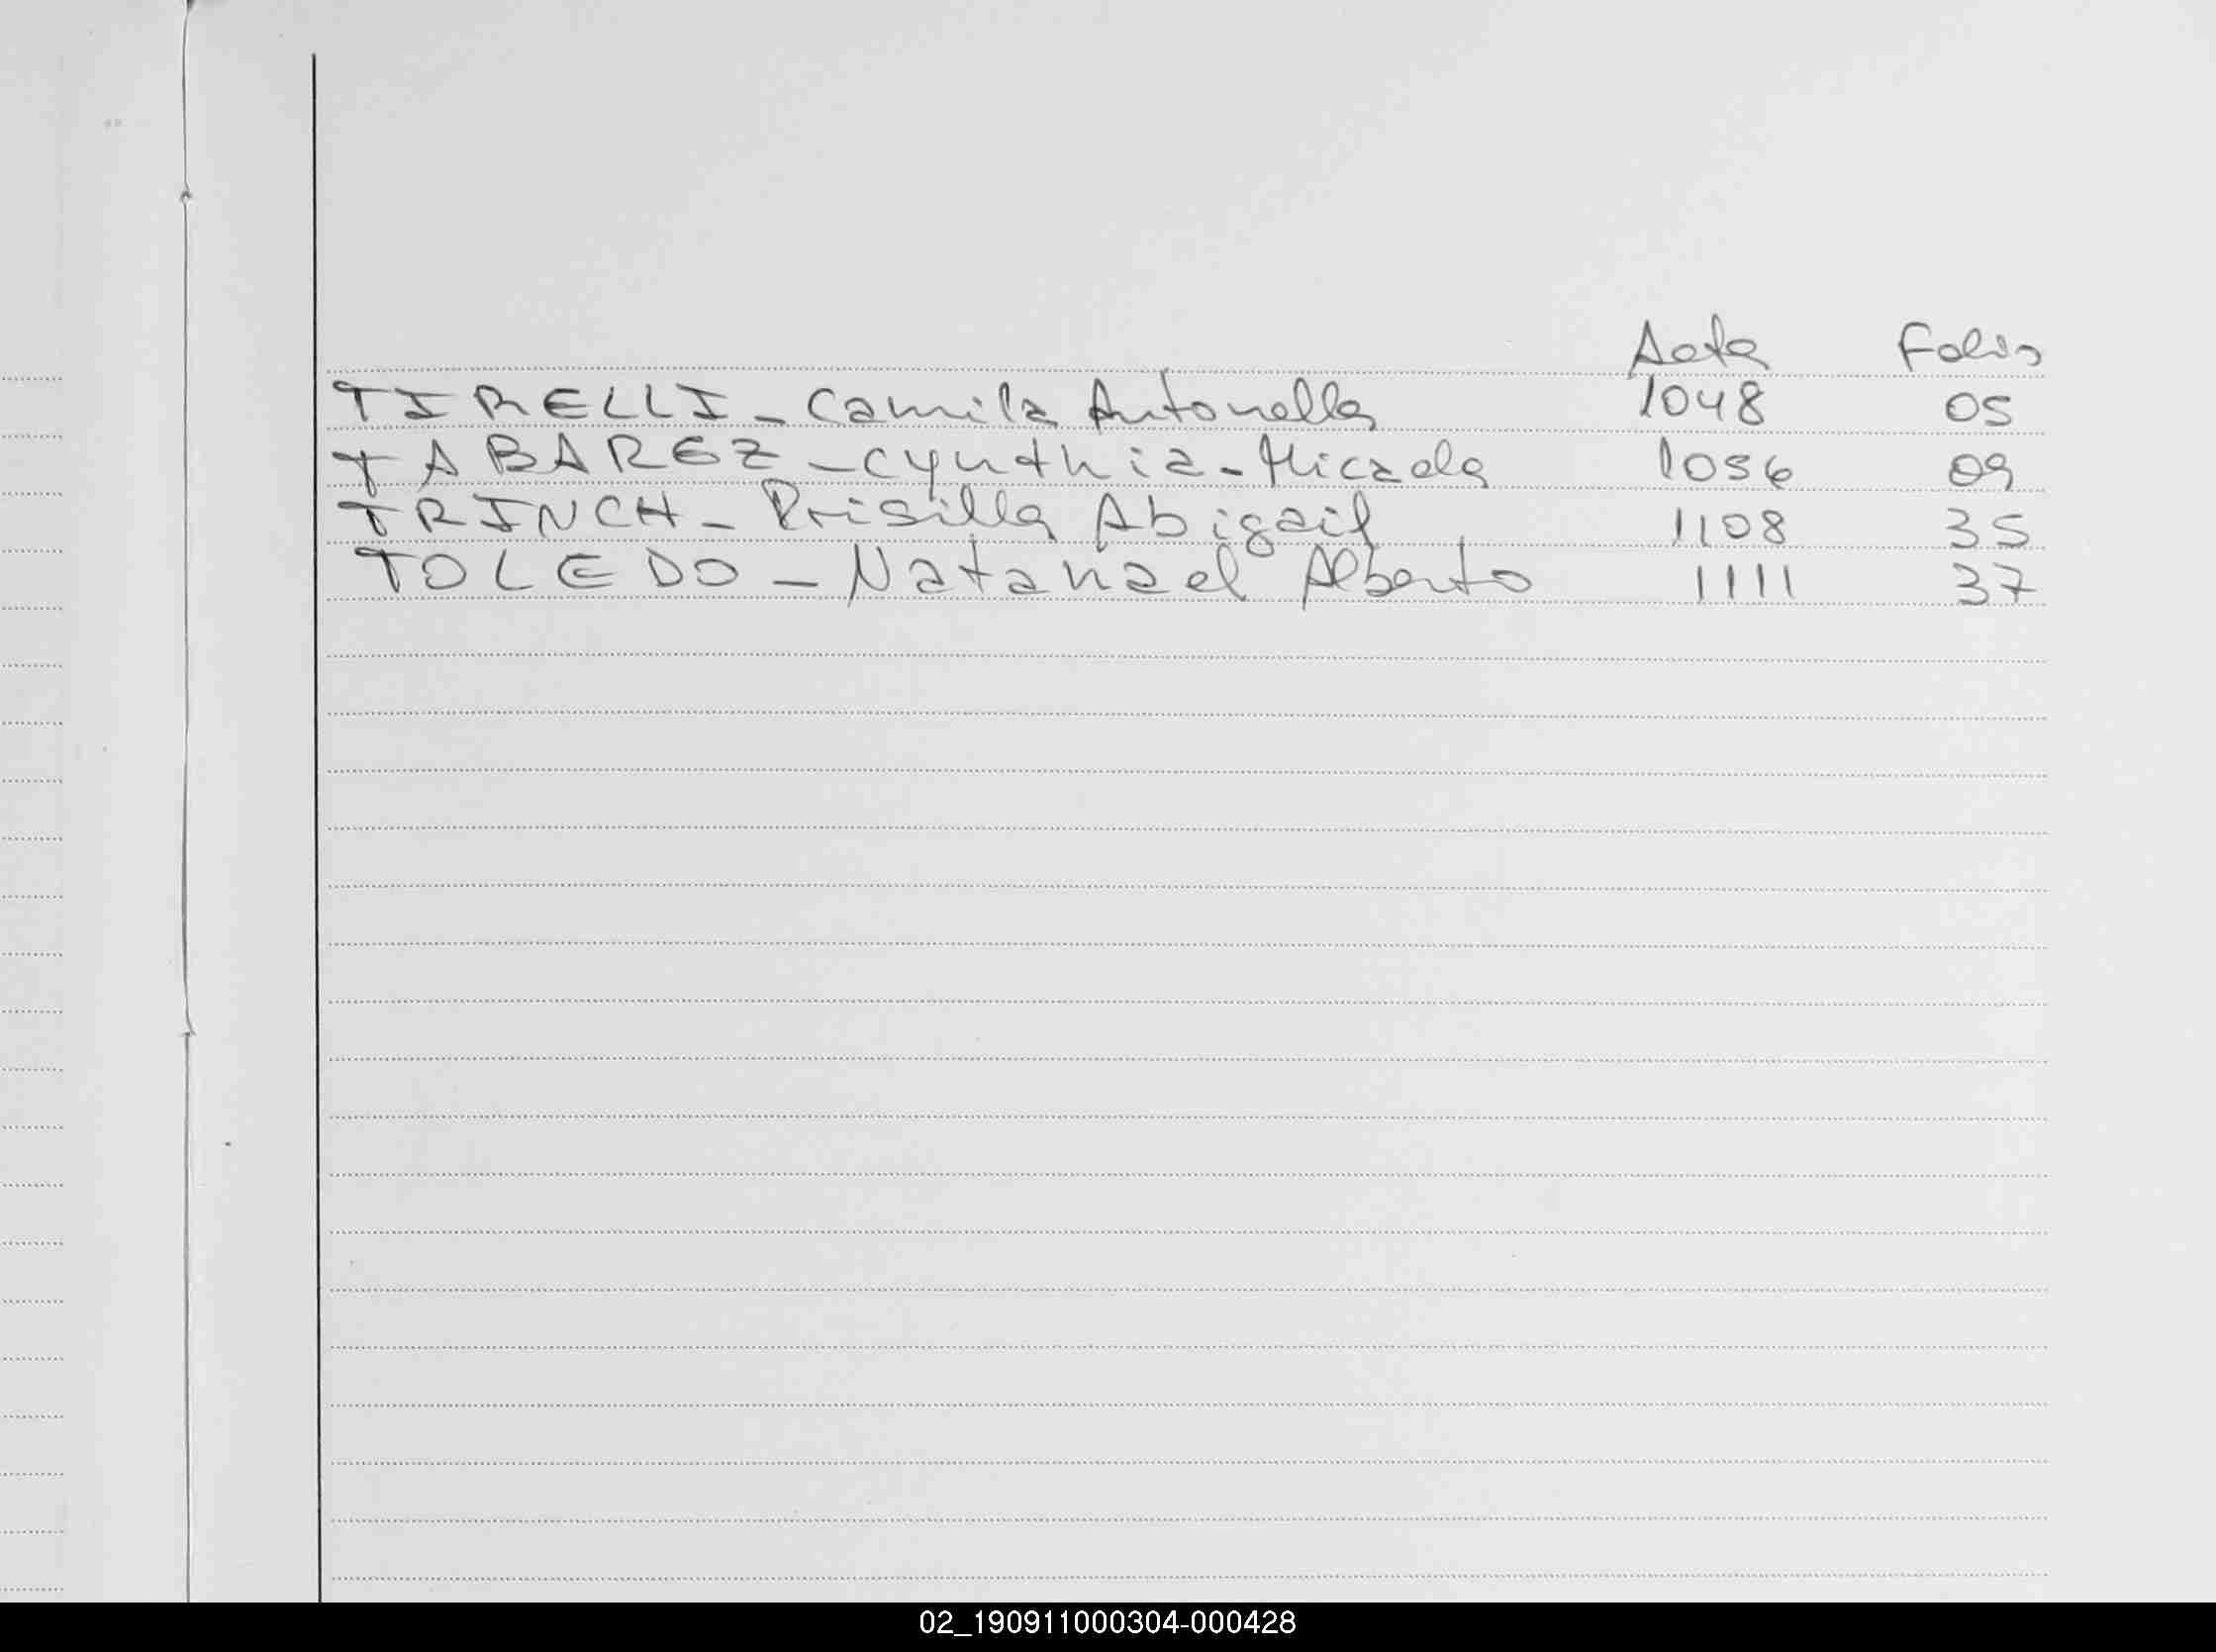 Acta Folio
TIRELLI - Camila Antonella 1048 05
TABAREZ - Cynthia - Micaela 1056 09
TRINCH - Prisilla Abigail 1108 35
TOLEDO - Natanael Alberto 1111 37
02_190911000304-000428